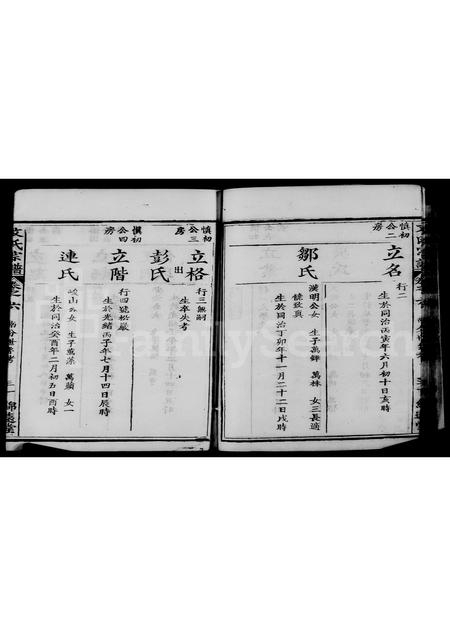 慎初公二房
立名
行二
生於同治丙寅年六月初十日亥時
鄒氏
漢明公女 生子萬鋅 萬林 女三長適
饒致真
生於同治丁卯年十一月二十二日戌時
慎初公三房
立格
行三無嗣
生卒失考
彭氏
出
慎初公四房
立階
行四號松巖
生於光緒丙子年七月十四日辰時
連氏
峻山公女 生子萬蘋 女一
生於同治癸酉年二月初五日酉時
文氏宗譜
卷之六
三
錦裘堂
FamilySearch